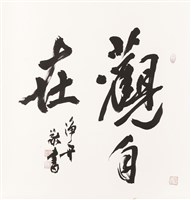 觀自
在
淨平
敬書